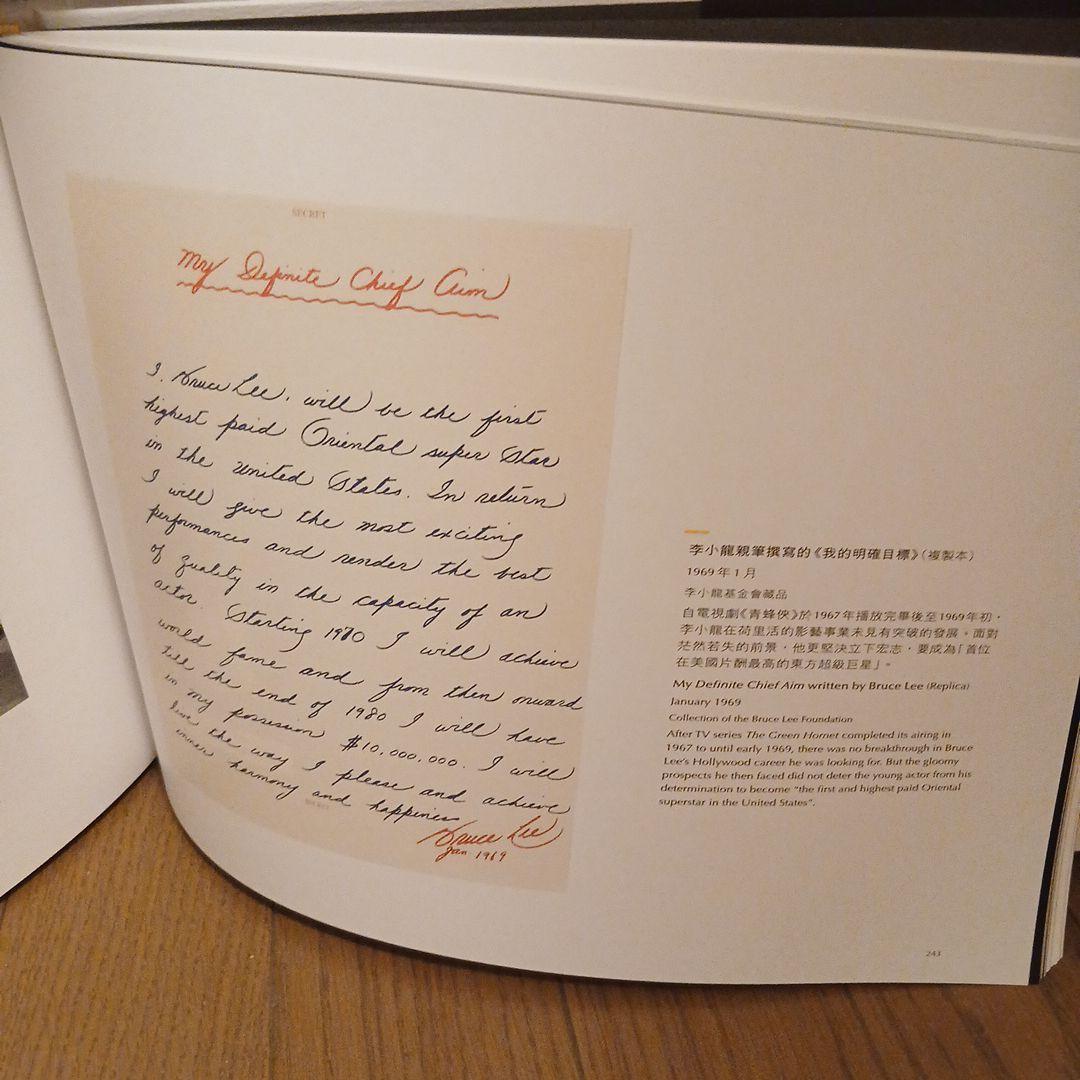 SECRET
My Definite Chief Aim
I, Bruce Lee, will be the first
highest paid Oriental super Star
in the United States. In return
I will give the most exciting
performances and render the best
of quality in the capacity of an
actor. Starting 1970 I will achieve
world fame and from then onward
till the end of 1980 I will have
in my possession $10,000,000. I will
live the way I please and achieve
inner harmony and happiness
SECRET
Bruce Lee
Jan. 1969
李小龍親筆撰寫的《我的明確目標》(複製本)
1969年1月
李小龍基金會藏品
自電視劇《青蜂俠》於1967年播放完畢後至1969年初，
李小龍在荷里活的影藝事業未見有突破的發展。面對
茫然若失的前景，他更堅決立下宏志，要成為「首位
在美國片酬最高的東方超級巨星」。
My Definite Chief Aim written by Bruce Lee (Replica)
January 1969
Collection of the Bruce Lee Foundation
After TV series The Green Hornet completed its airing in
1967 to until early 1969, there was no breakthrough in Bruce
Lee's Hollywood career he was looking for. But the gloomy
prospects he then faced did not deter the young actor from his
determination to become "the first and highest paid Oriental
superstar in the United States".
243